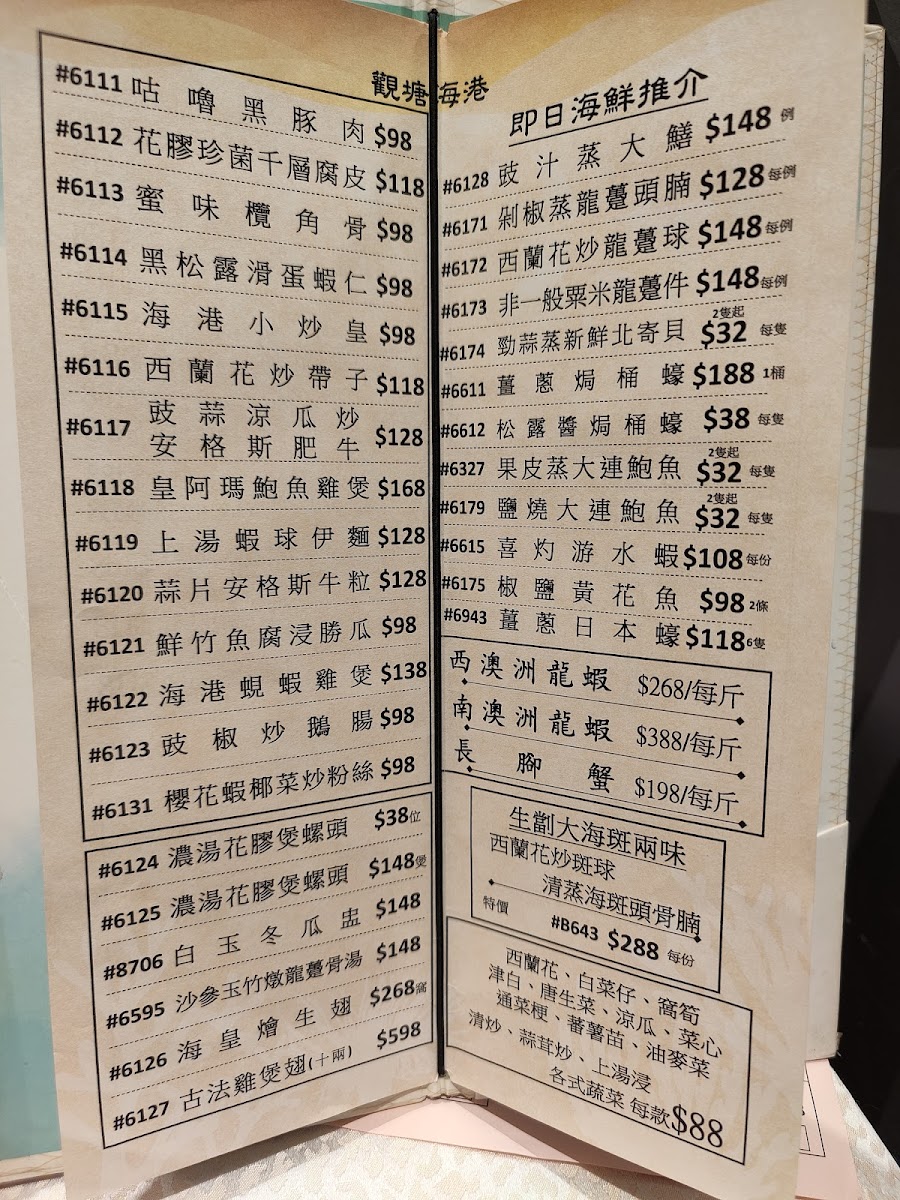 觀塘海港
#6111 咕嚕黑豚肉 $98
#6112 花膠珍菌千層腐皮 $118
#6113 蜜味欖角骨 $98
#6114 黑松露滑蛋蝦仁 $98
#6115 海港小炒皇 $98
#6116 西蘭花炒帶子 $118
#6117 豉蒜涼瓜炒
安格斯肥牛 $128
#6118 皇阿瑪鮑魚雞煲 $168
#6119 上湯蝦球伊麵 $128
#6120 蒜片安格斯牛粒 $128
#6121 鮮竹魚腐浸勝瓜 $98
#6122 海港蜆蝦雞煲 $138
#6123 豉椒炒鵝腸 $98
#6131 櫻花蝦椰菜炒粉絲 $98
#6124 濃湯花膠煲螺頭 $38位
#6125 濃湯花膠煲螺頭 $148煲
#8706 白玉冬瓜盅 $148
#6595 沙參玉竹燉龍躉骨湯 $148
#6126 海皇燴生翅 $268窩
#6127 古法雞煲翅(十兩) $598
即日海鮮推介
#6128 豉汁蒸大鱔 $148 例
#6171 剁椒蒸龍躉頭腩 $128 每例
#6172 西蘭花炒龍躉球 $148 每例
#6173 非一般粟米龍躉件 $148 每例
#6174 勁蒜蒸新鮮北寄貝 2隻起 $32 每隻
#6611 薑蔥焗桶蠔 $188 1桶
#6612 松露醬焗桶蠔 $38 每隻
#6327 果皮蒸大連鮑魚 2隻起 $32 每隻
#6179 鹽燒大連鮑魚 2隻起 $32 每隻
#6615 喜灼游水蝦 $108 每份
#6175 椒鹽黃花魚 $98 2條
#6943 薑蔥日本蠔 $118 6隻
西澳洲龍蝦 $268/每斤
南澳洲龍蝦 $388/每斤
長腳蟹 $198/每斤
生劏大海斑兩味
西蘭花炒斑球
清蒸海斑頭骨腩
特價 #B643 $288 每份
西蘭花、白菜仔、窩筍
津白、唐生菜、涼瓜、菜心
通菜梗、蕃薯苗、油麥菜
清炒、蒜茸炒、上湯浸
各式蔬菜 每款$88